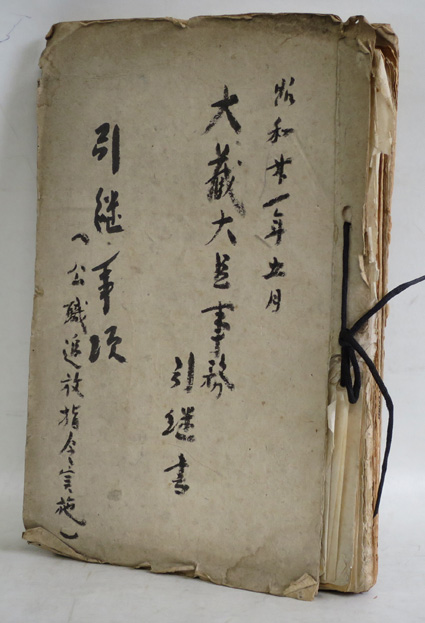 昭和廿一年五月
大蔵大臣事務
引継書
引継事項
（公職追放指令実施）